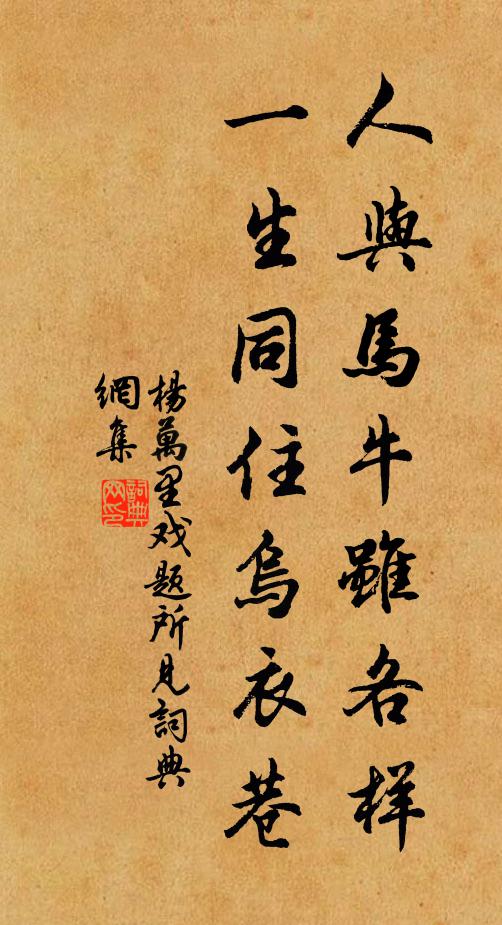 人與馬牛雖各样
一生同住烏衣巷
楊萬里戏题所見詞典
網集
詞典
网印